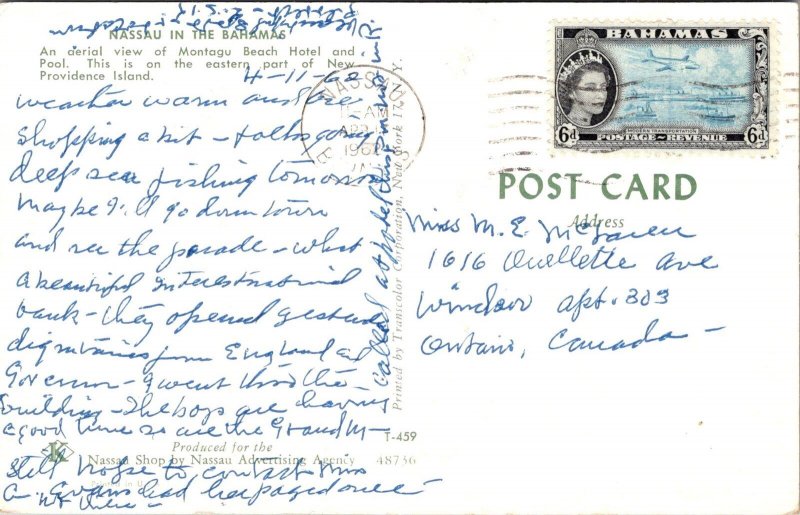 NASSAU IN THE BAHAMAS
An aerial view of Montagu Beach Hotel and
Pool. This is on the eastern part of New
Providence Island.
4-11-62
weather warm
shopping a bit - folks going
deep sea fishing tomorrow
maybe I'll go down town
and see the parade - what
a beautiful international
bank - they opened yesterday
dignitaries from England and
Governor - I went thro the
building - The boys are having
a good time so are the Grand M -
Still hope to contact Miss
Evans had her paged once -
called at hotel this
NASSAU
1962
Printed by Transcolor Corporation, New York 17, N.Y.
T-459
Produced for the
Nassau Shop by Nassau Advertising Agency 48736
Printed in U.
BAHAMAS
MODERN TRANSPORTATION
6d POSTAGE & REVENUE 6d
POST CARD
Address
Miss M. E.
1616 Ouellette Ave
Windsor apt. 303
Ontario, Canada -